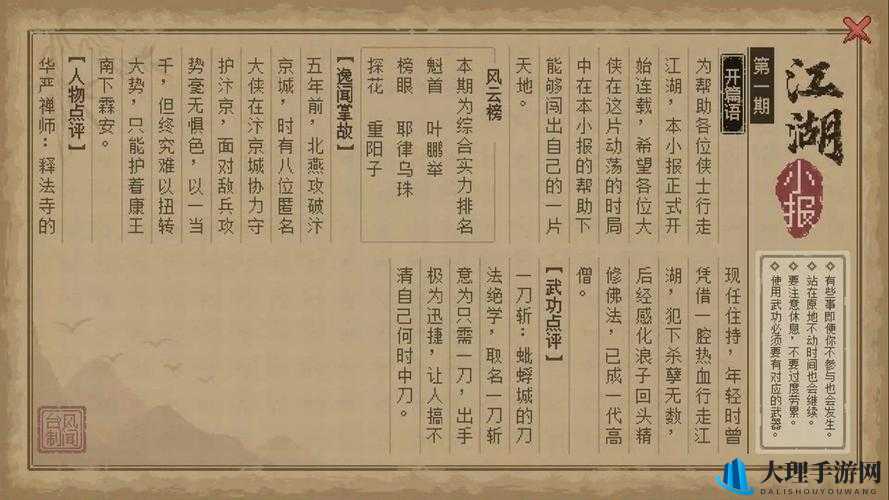 江湖
小报
第一期
有些事即便你不参与也会发生。
站在原地不动时间也会继续。
要注意休息，不要过度劳累。
使用武功必须要有对应的武器。
开篇语
为帮助各位侠士行走
江湖，本小报正式开
始连载，希望各位大
侠在这片动荡的时局
中在本小报的帮助下
能够闯出自己的一片
天地。
风云榜
本期为综合实力排名
魁首 叶鹏举
榜眼 耶律乌珠
探花 重阳子
【逸闻掌故】
五年前，北燕攻破汴
京城，时有八位匿名
大侠在汴京城协力守
护汴京，面对敌兵攻
势毫无惧色，以一当
千，但终究难以扭转
大势，只能护着康王
南下霖安。
【人物点评】
华严禅师：释法寺的
现任住持，年轻时曾
凭借一腔热血行走江
湖，犯下杀孽无数，
后经感化浪子回头精
修佛法，已成一代高
僧。
【武功点评】
一刀斩：蚍蜉城的刀
法绝学，取名一刀斩
意为只需一刀，出手
极为迅捷，让人搞不
清自己何时中刀。
风闻
台制
大理手游网
DALISHOUYOUWANG